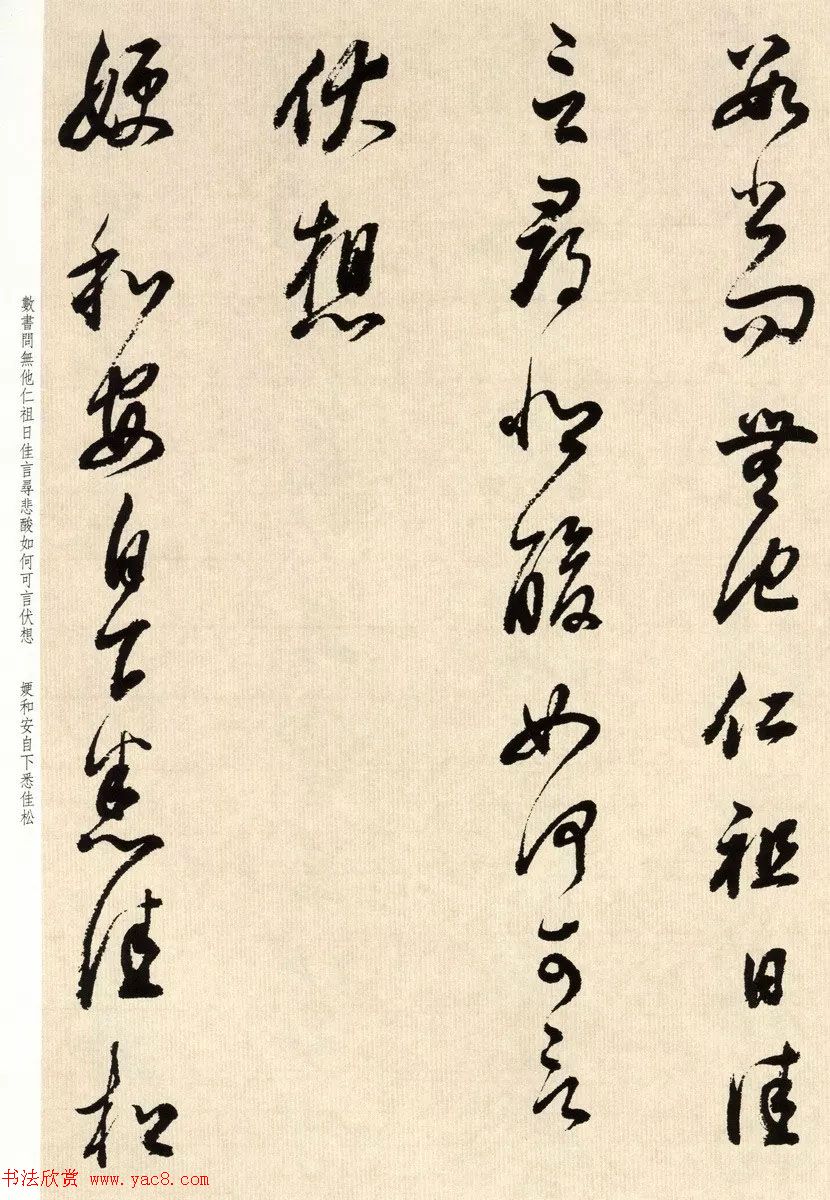 數書問無他仁祖日佳
言尋悲酸如何可言
伏想
㛐和安自下悉佳松
數書問無他仁祖日佳言尋悲酸如何可言伏想 㛐和安自下悉佳松
书法欣赏 www.yac8.com